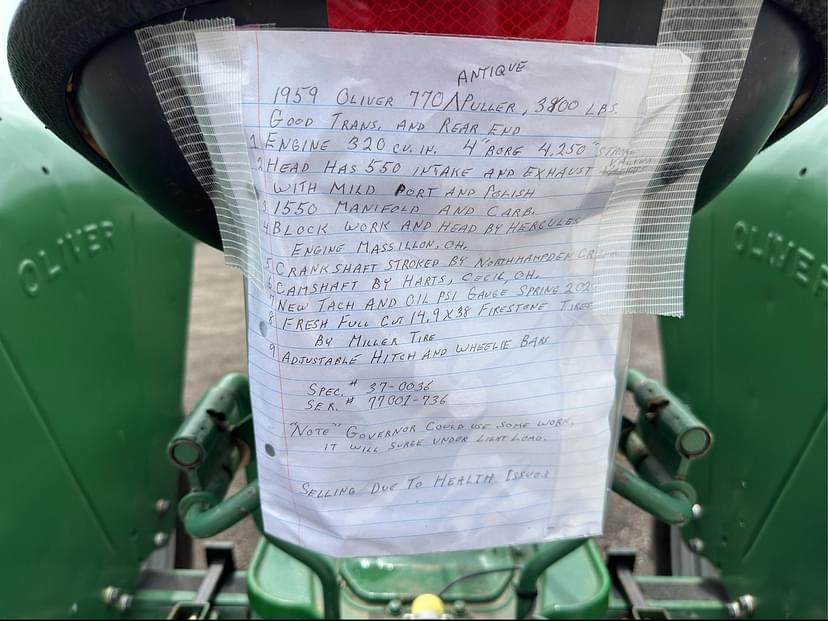 ANTIQUE
1959 OLIVER 770 ⋀PULLER, 3800 LBS.
GOOD TRANS, AND REAR END
1 ENGINE 320 CU. IN. 4" BORE 4.250" STROKE
2 HEAD HAS 550 INTAKE AND EXHAUST VALVES
WITH MILD PORT AND POLISH
3 1550 MANIFOLD AND CARB.
4 BLOCK WORK AND HEAD BY HERCULES
ENGINE MASSILLON, OH.
5 CRANKSHAFT STROKED BY NORTHHAMPDEN
6 CAMSHAFT BY HARTS, CECIL, OH.
7 NEW TACH AND OIL PSI GAUGE SPRING
8 FRESH FULL CUT 14.9X38 FIRESTONE TIRES
BY MILLER TIRE
9 ADJUSTABLE HITCH AND WHEELIE BARS
SPEC. # 37-0036
SER. # 77001-736
"NOTE" GOVERNOR COULD USE SOME WORK,
IT WILL SURGE UNDER LIGHT LOAD.
SELLING DUE TO HEALTH ISSUES
OLIVER
OLIVER